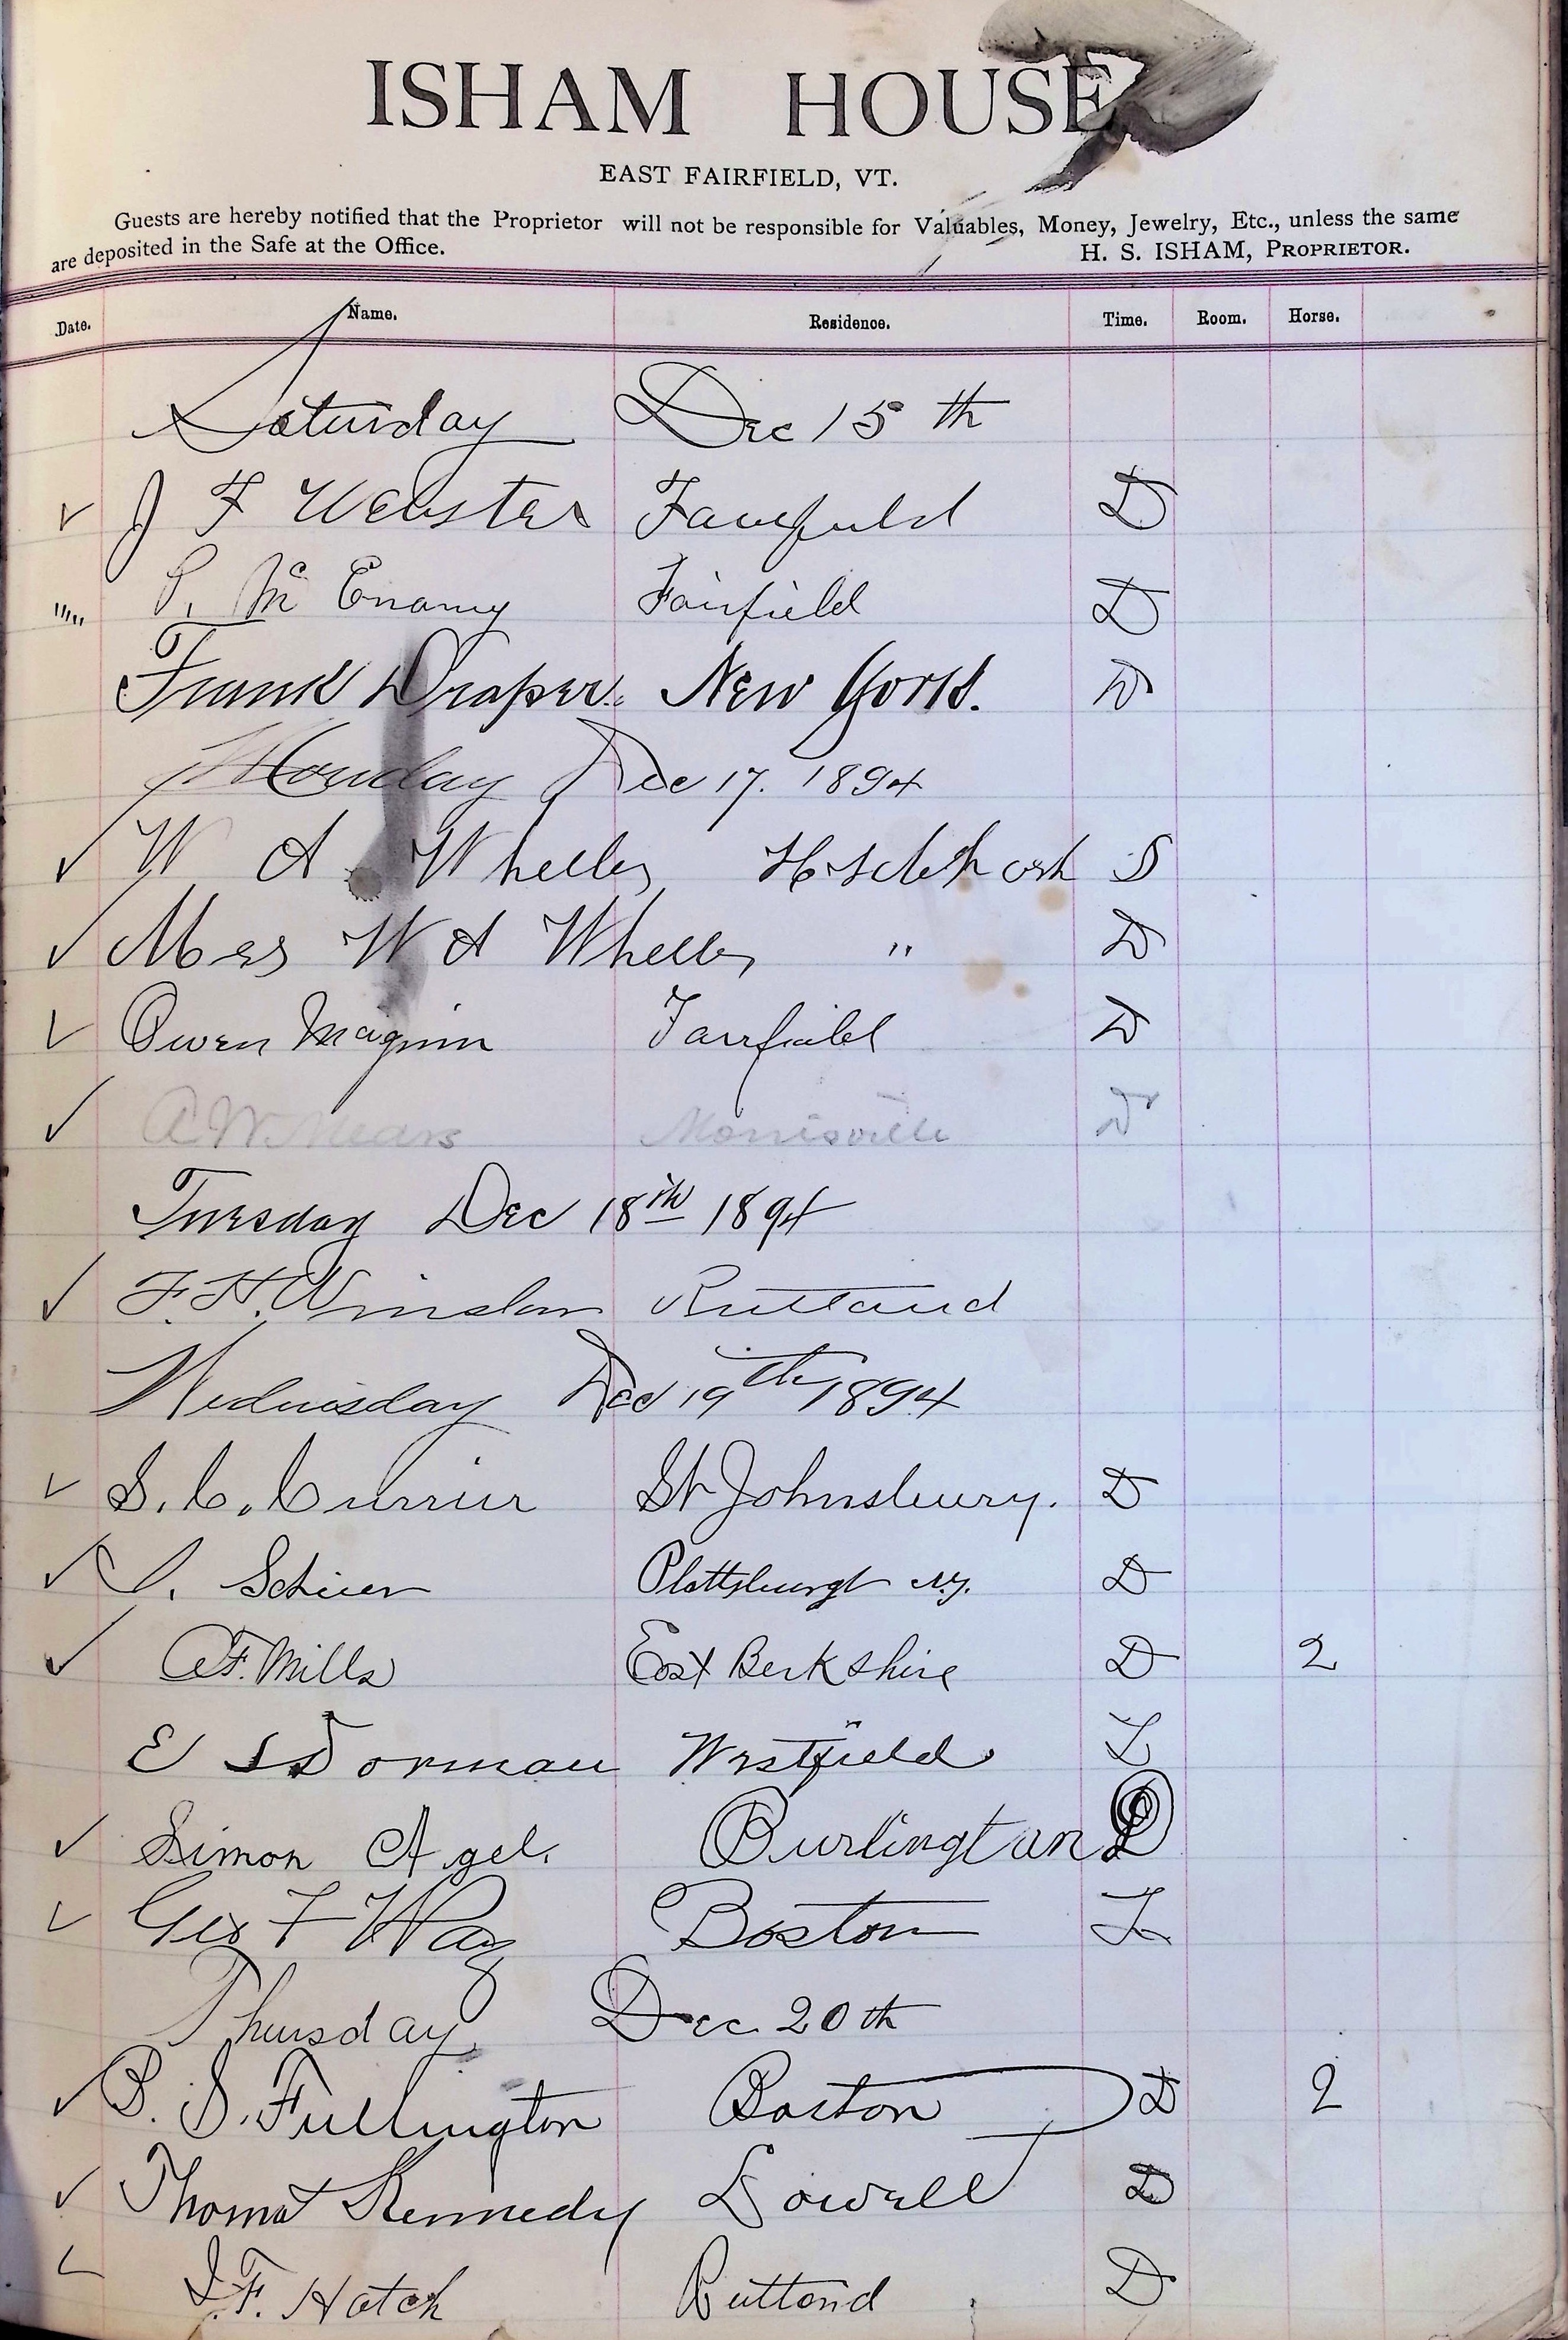 ISHAM HOUSE
EAST FAIRFIELD, VT.
Guests are hereby notified that the Proprietor will not be responsible for Valuables, Money, Jewelry, Etc., unless the same
are deposited in the Safe at the Office. H. S. ISHAM, PROPRIETOR.
Date. Name. Residence. Time. Room. Horse.
Saturday Dec 15th
✓ J F Webster Fairfield D
P. Mc Enany Fairfield D
Frank Draper. New York. D
Monday Dec 17. 1894
✓ W A S
✓ W A " D
✓ Owen Maginn Fairfield D
✓ A W Mears Morrisville D
Tuesday Dec 18th 1894
✓ F. H. Winslow Rutland
Wednesday Dec 19th 1894
✓ S. C. Currier St Johnsbury. D
✓ Plattsburgh N.Y. D
✓ A F. Mills East Berkshire D 2
E S Dorman Westfield L
✓ Simon Agel. Burlington
✓ Geo F Way Boston L
Thursday Dec 20th
✓ B. S. Fullington Boston D 2
✓ Thomas Kennedy Lowell D
✓ I. F. Hatch Rutland D